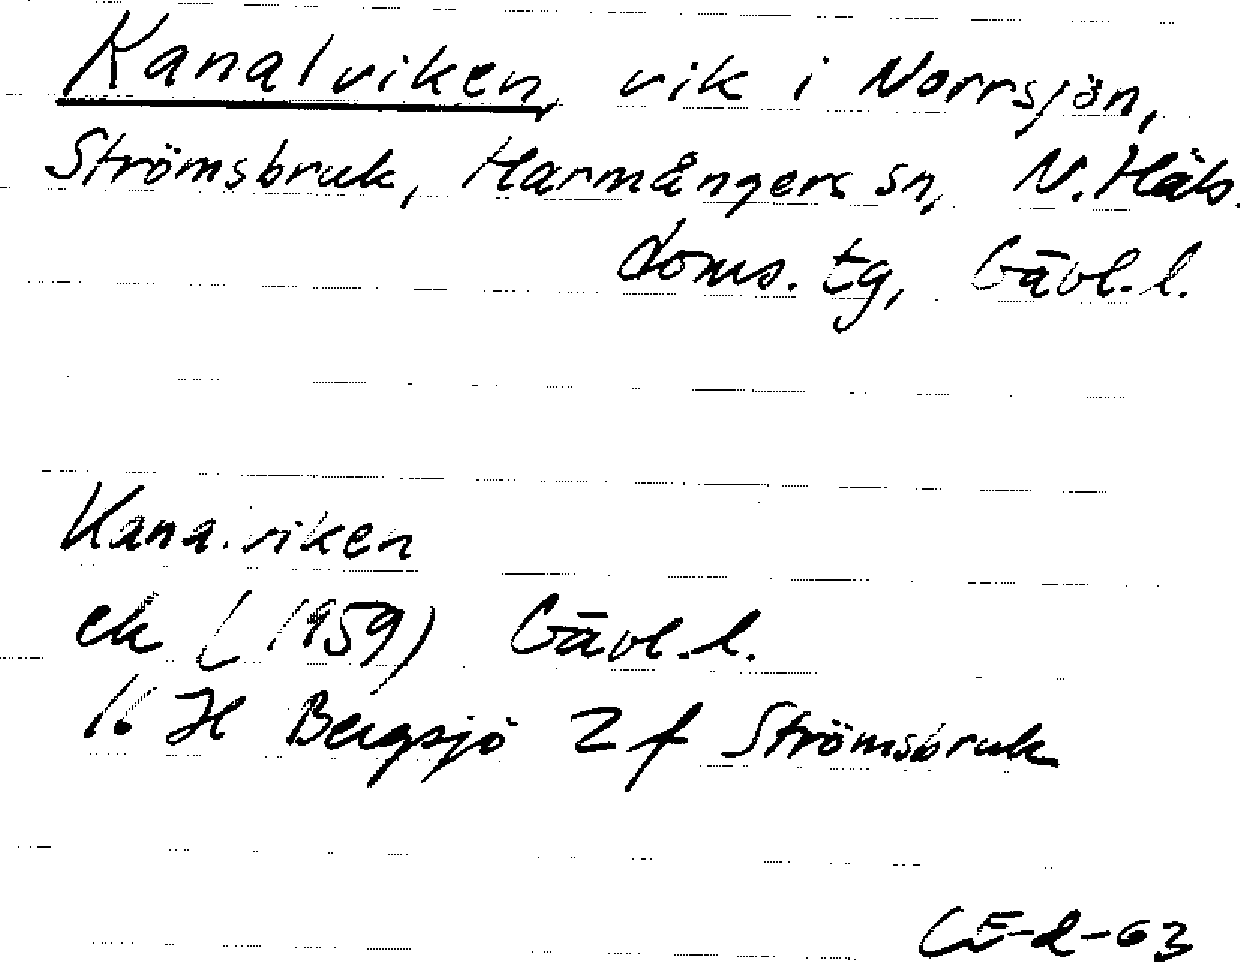 Kanalviken, vik i Norrsjön,
Strömsbruk, Harmångers sn, N. Häls.
doms. tg, Gävl. l.
Kana.viken
ek (1959) Gävl. l.
16 H Bergsjö 2 f Strömsbruk
CE-2-63